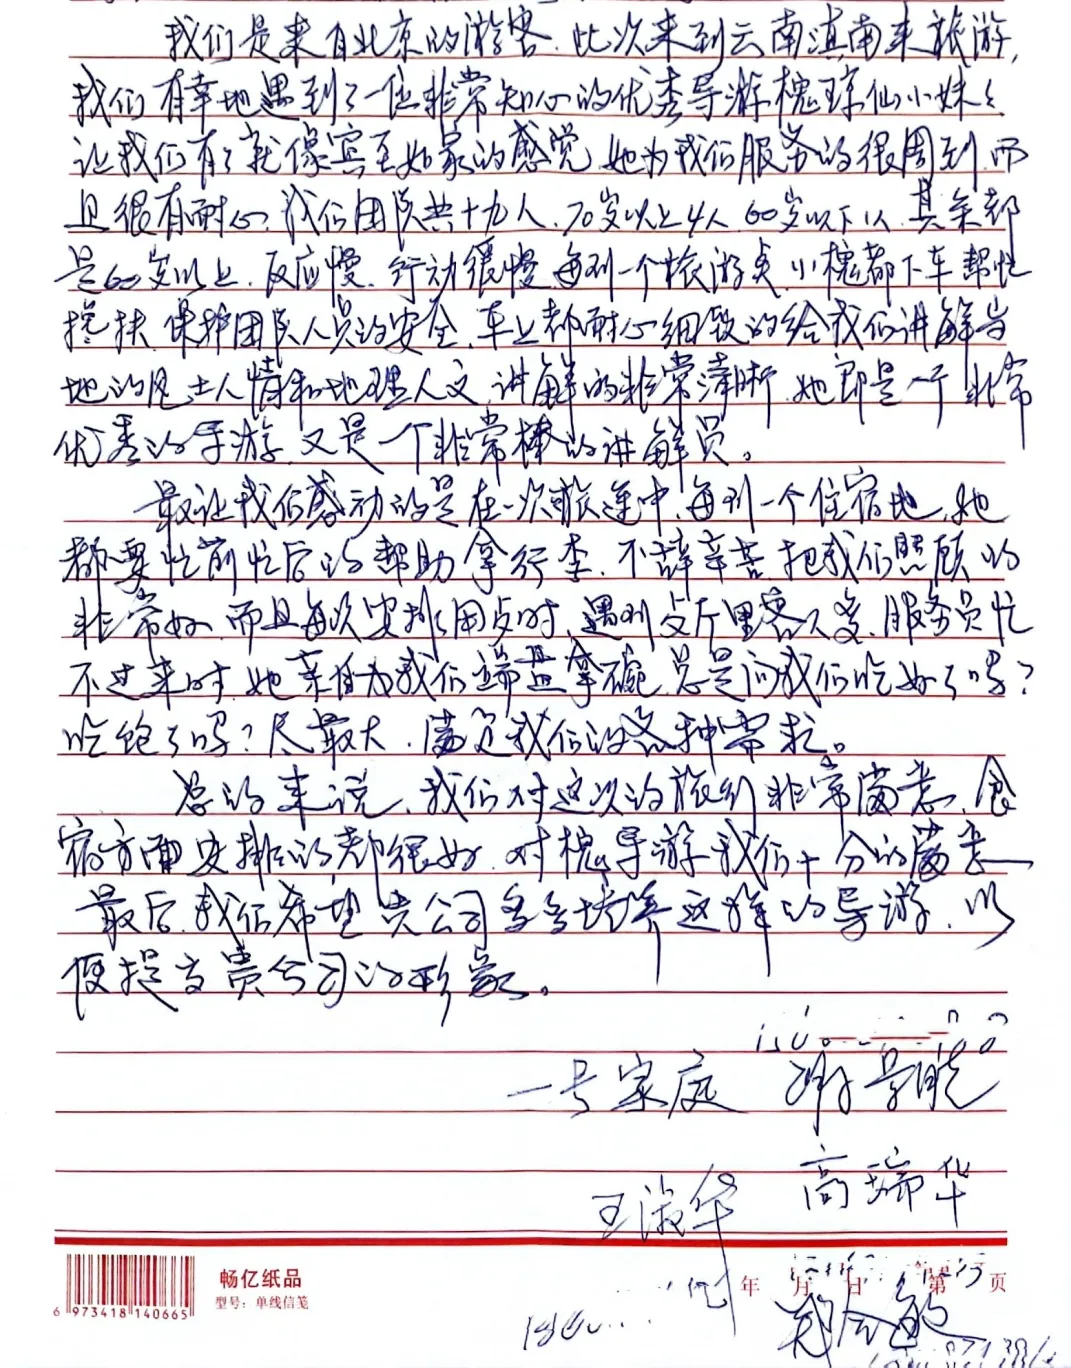 我们是来自北京的游客.此次来到云南滇南来旅游,
我们有幸地遇到了一位非常知心的优秀导游槐琼仙小妹々
让我们有了就像宾至如家的感觉.她为我们服务的很周到.而
且很有耐心.我们团队共十九人.70岁以上4人60岁以下1人.其余都
是60岁以上.反应慢.行动缓慢每到一个旅游点.小槐都下车帮忙
搀扶.保护团队人员的安全.车上都耐心细致的给我们讲解当
地的风土人情和地理人文.讲解的非常清晰.她即是一个非常
优秀的导游.又是一个非常棒的讲解员。
最让我们感动的是在一次旅途中.每到一个住宿地.她
都要忙前忙后的帮助拿行李.不辞辛苦把我们照顾的
非常好.而且每次安排用餐时.遇到餐厅里客人多.服务员忙
不过来时.她亲自为我们端盘拿碗.总是问我们吃好了吗?
吃饱了吗?尽最大.满足我们的各种需求。
总的来说.我们对这次的旅行非常满意.食
宿方面安排的都很好.对槐导游我们十分的满意
最后.我们希望贵公司多多培养这样的导游.以
便提高贵公司的形象。
一号家庭 谢景晓
高瑞华
王淑华
畅亿纸品
型号:单线信笺
年 月 日 第 页
6 973418 140665